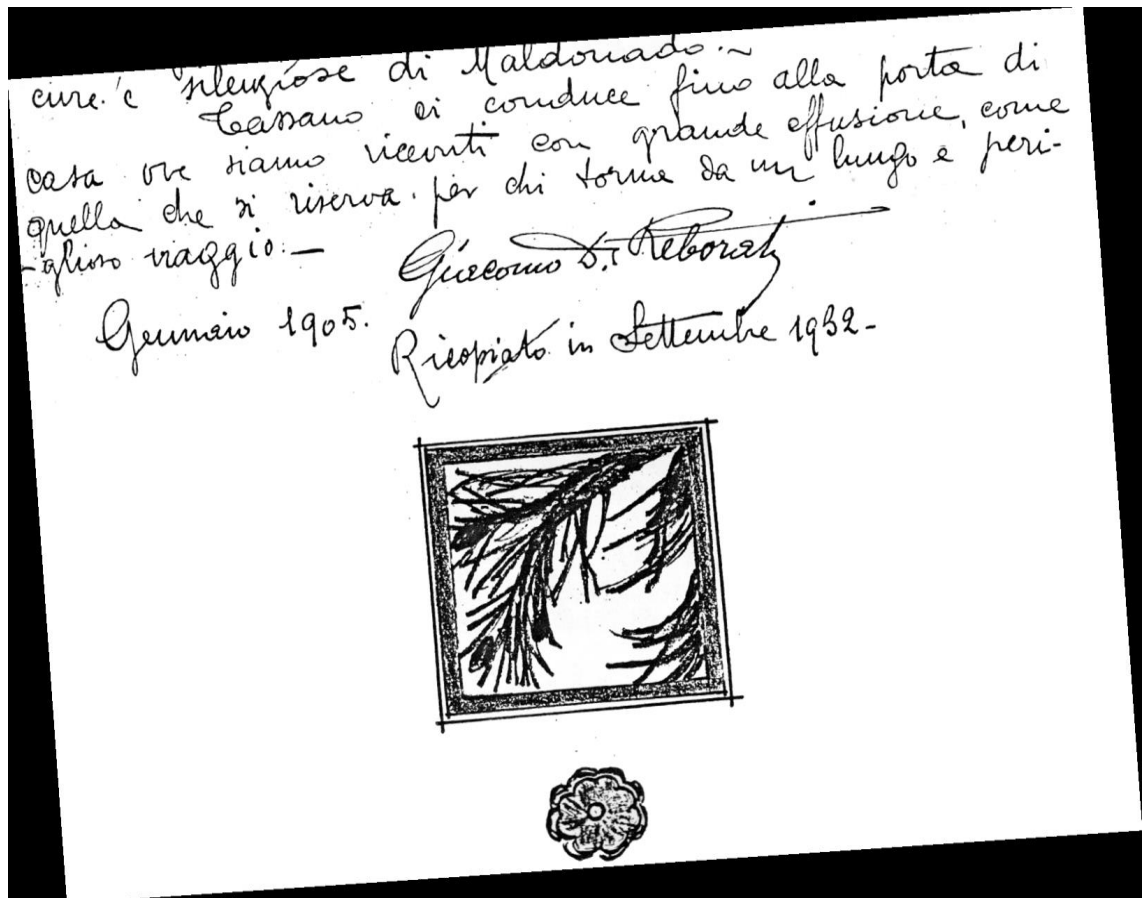 cure e silenziose di Maldonado.~
Cassano ci conduce fino alla porta di
casa ove siamo ricevuti con grande effusione, come
quella che si riserva per chi torna da un lungo e peri-
-glioso viaggio.—
Giacomo D. Reborati
Gennaio 1905.
Ricopiato in Settembre 1932-